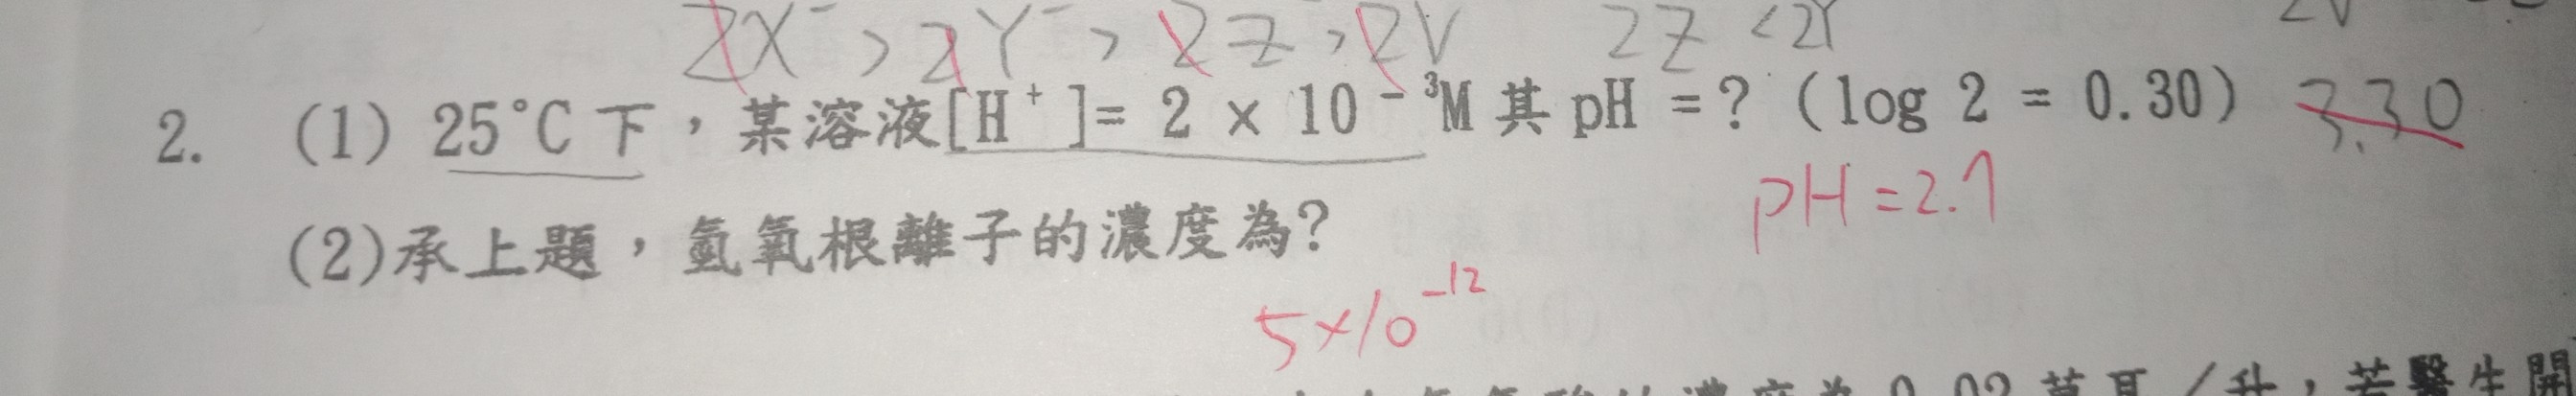 2X⁻ > 2Y⁻ > 2Z⁻ > 2V 2Z < 2Y
2. (1) 25°C 下，某溶液[H⁺]= 2 × 10⁻³M 其 pH =? (log 2 = 0.30) 3.30
pH = 2.7
(2)承上題，氫氧根離子的濃度為?
5×10⁻¹²